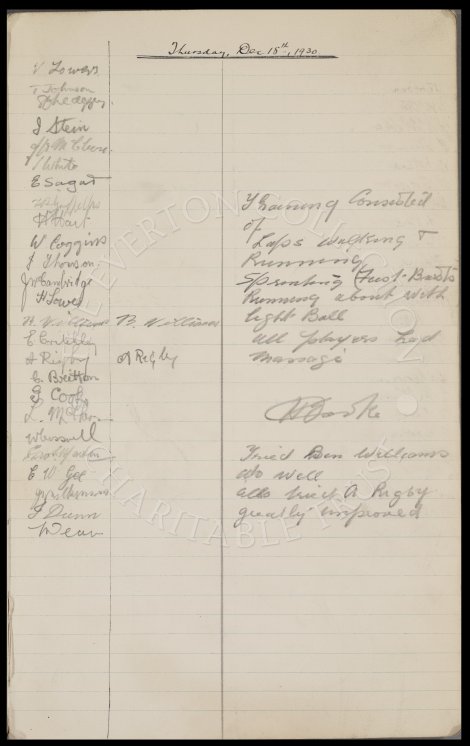 Thursday, Dec 18th, 1930
T Johnson
J Stein
T White
E Sagar
H Hart
W Coggins
J Thomson
J W Cambridge
H Lowe
B. Williams B. Williams
E Critchley
A Rigby A Rigby
C Britton
E Cook
L. McClure
E W Gee
J Dunn
Training Consisted
of
Laps Walking &
Running,
Sprinting Fust-Bursts
Running about with
light Ball
all players had
Massage
H Cooke
Tried Ben Williams
do well
also tried A Rigby
greatly improved
THE EVERTON COLLECTION
CHARITABLE TRUST